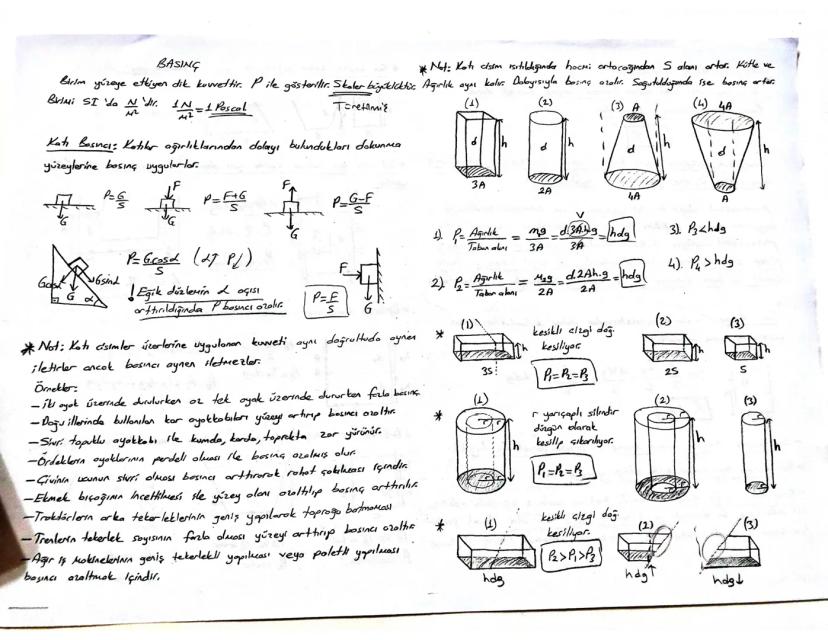 BASINÇ
Birim yüzeye etkiyen dik kuvvettir. P ile gösterilir. Skaler büyüklüktür.
Birimi SI'da N/m² 'dir. 1N/m² = 1 Pascal Türetilmiş
Katı Basıncı: Katılar ağırlıklarından dolayı bulundukları dokunma
yüzeylerine basınç uygularlar.
G P=G/S F G P=F+G/S F G P=G-F/S
Gcosα G Gsinα α P=Gcosα/S (α↑ P↓)
! Eğik düzlemin α açısı
arttırıldığında P basıncı azalır.
F G P=F/S
* Not: Katı cisimler üzerlerine uygulanan kuvveti aynı doğrultuda aynen
iletirler ancak basıncı aynen iletmezler.
Örnekler:
- İki ayak üzerinde durulurken az tek ayak üzerinde dururken fazla basınç
- Doğu illerinde kullanılan kar ayakkabıları yüzeyi artırıp basıncı azaltır.
- Sivri topuklu ayakkabı ile kumda, karda, toprakta zor yürünür.
- Ördeklerin ayaklarının perdeli olması ile basınç azalmış olur.
- Çivinin ucunun sivri olması basıncı arttırarak rahat çakılması içindir.
- Ekmek bıçağının inceltilmesi ile yüzey alanı azaltılıp basınç arttırılır.
- Traktörlerin arka tekerleklerinin geniş yapılarak toprağa batmaması
- Trenlerin tekerlek sayısının fazla olması yüzeyi arttırıp basıncı azaltır
- Ağır iş makinelerinin geniş tekerlekli yapılması veya paletli yapılması
basıncı azaltmak içindir.
* Not: Katı cisim ısıtıldığında hacmi artacağından S alanı artar. Kütle ve
Ağırlık aynı kalır. Dolayısıyla basınç azalır. Soğutulduğunda ise basınç artar.
(1) (2) (3) A (4) 4A
d h d h d h d h
3A 2A 4A A
1). P₁= Ağırlık/Taban alanı = mg/3A = d.3Ah.g/3A = hdg V 3). P₃<hdg
2). P₂= Ağırlık/Taban alanı = m₂g/2A = d.2Ah.g/2A = hdg 4). P₄>hdg
* (1) h 3S kesikli çizgi doğ. (2) h 2S (3) h S
kesiliyor.
P₁=P₂=P₃
* (1) h r yarıçaplı silindir (2) h (3) h
düzgün olarak
kesilip çıkarılıyor.
P₁=P₂=P₃
* (1) kesikli çizgi doğ. (2) (3)
kesiliyor.
P₂>P₁>P₃
hdg hdg↑ hdg↓